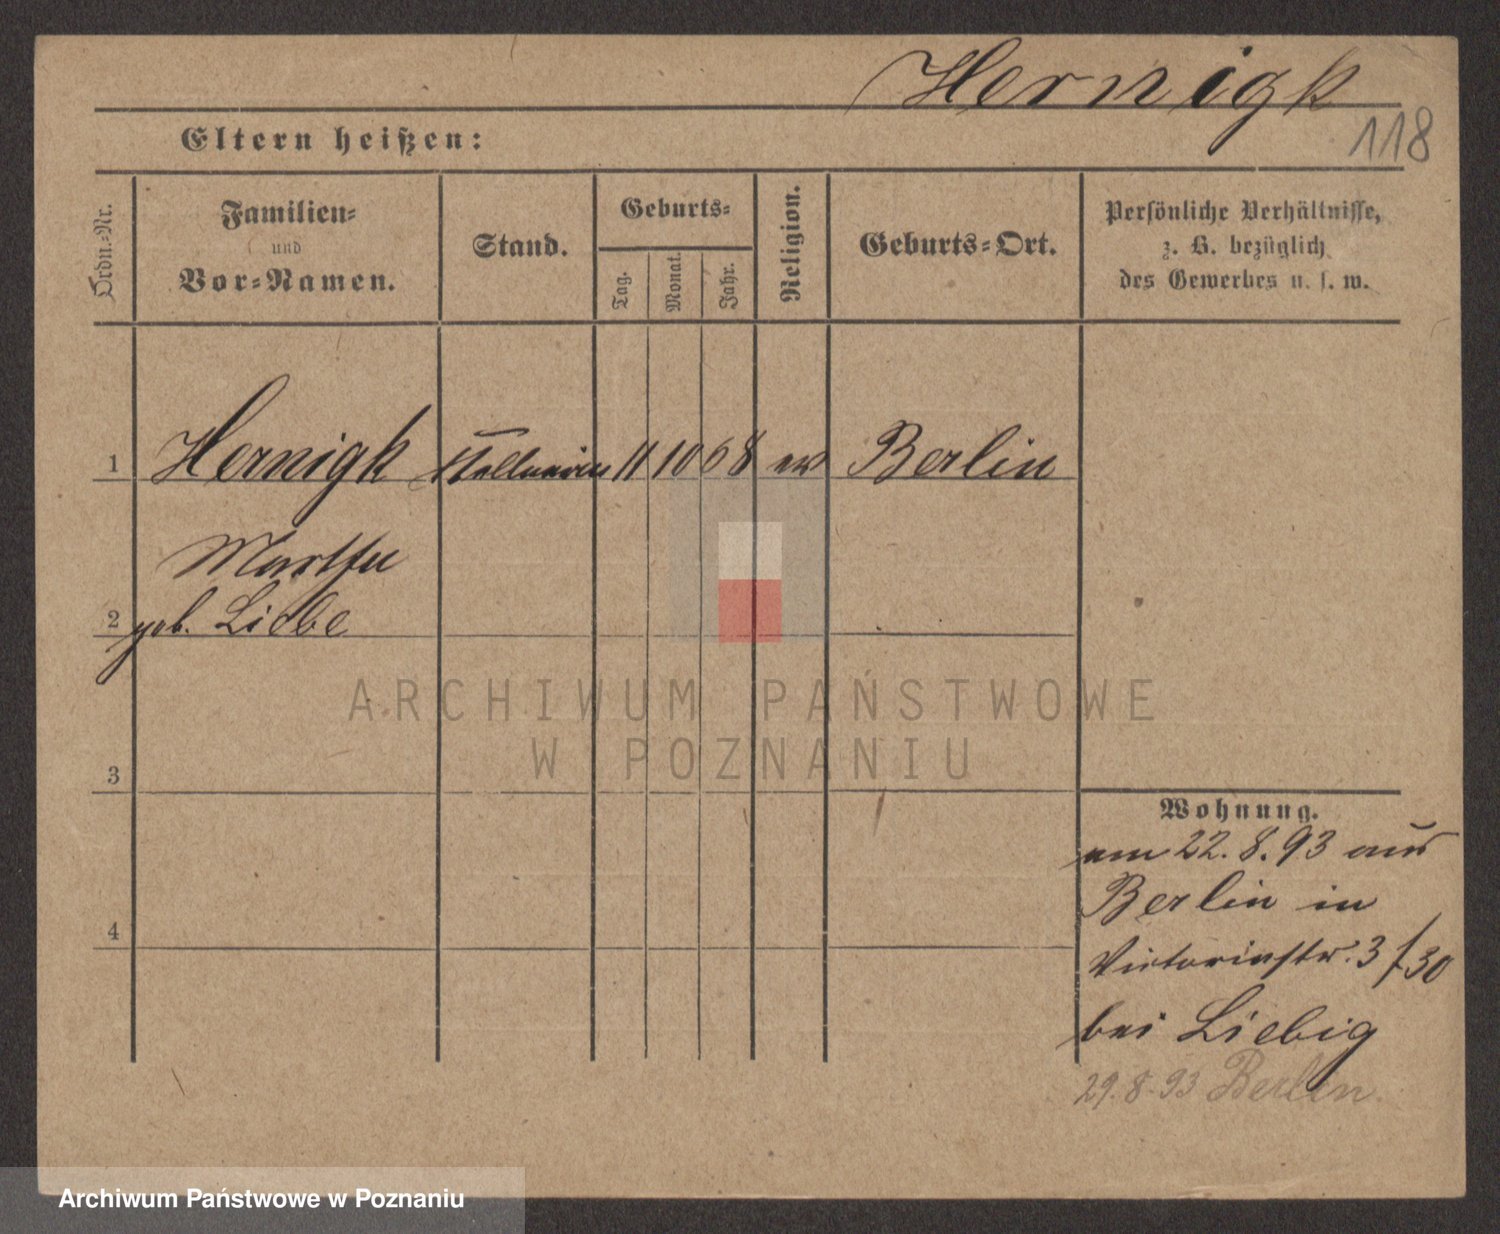 Hernigk
118
Eltern heißen:
Ordn.-Nr.
Familien-
und
Vor-Namen.
Stand.
Geburts-
Tag.
Monat.
Jahr.
Religion.
Geburts-Ort.
Persönliche Verhältnisse,
z. B. bezüglich
des Gewerbes u. s. w.
1 Hernigk 11 10 68 ev Berlin
Martha
2 geb. Liebe
3
4
Wohnung.
am 22.8.93 aus
Berlin in
Victoriastr. 3 / 30
bei Liebig
29.8.93 Berlin
ARCHIWUM PAŃSTWOWE
W POZNANIU
Archiwum Państwowe w Poznaniu